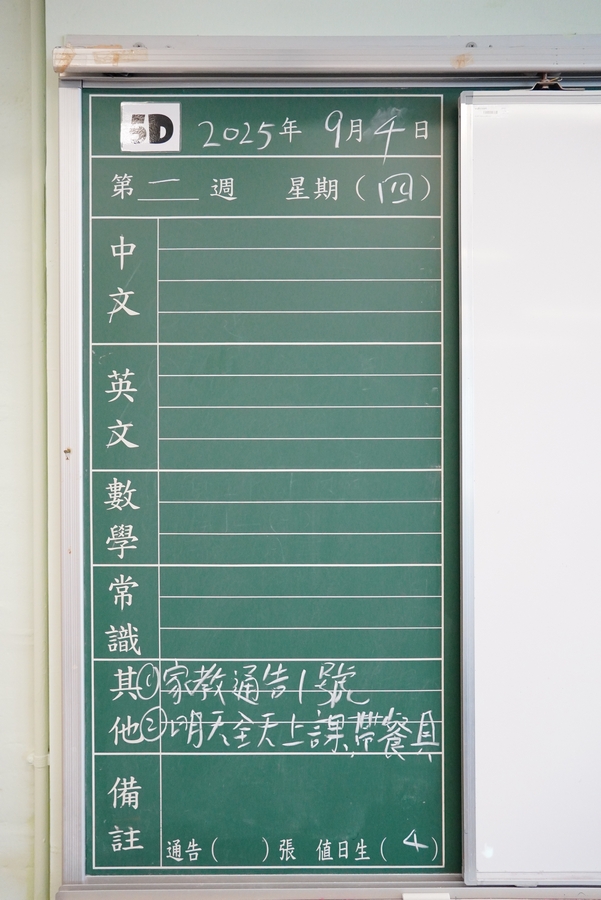 5D 2025年 9月4日
第 一 週 星期（四）
中文
英文
數學
常識
其他
①家教通告1號
②明天全天上課,帶餐具
備註
通告（ ）張 值日生（4）